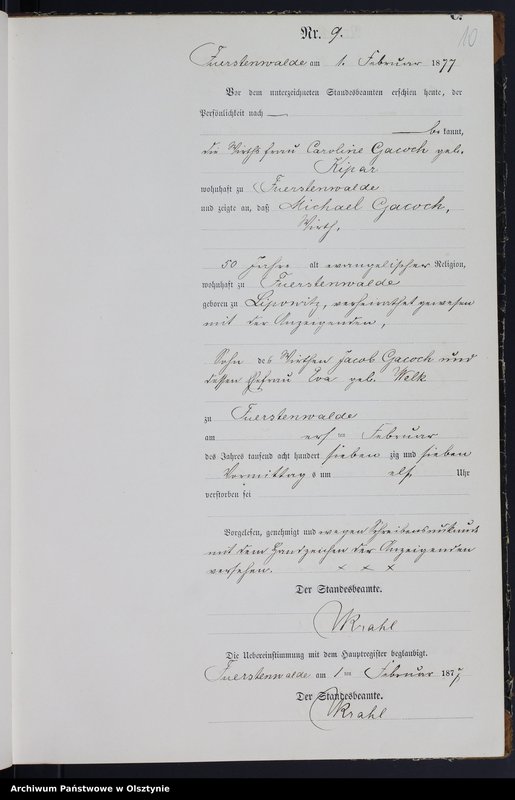 C.
10
Nr. 9.
Fuerstenwalde am 1. Februar 1877
Vor dem unterzeichneten Standesbeamten erschien heute, der
Persönlichkeit nach
be kannt,
die Wirthsfrau Caroline Gacoch geb.
Kipar
wohnhaft zu Fuerstenwalde
und zeigte an, daß Michael Gacoch,
Wirth,
50 Jahre alt evangelischer Religion,
wohnhaft zu Fuerstenwalde
geboren zu Lipowitz, verheirathet gewesen
mit der Anzeigenden,
Sohn des Wirthen Jacob Gacoch und
dessen Ehefrau Eva geb. Welk
zu Fuerstenwalde
am ersten Februar
des Jahres tausend acht hundert sieben zig und sieben
Vormittag s um elf Uhr
verstorben sei
Vorgelesen, genehmigt und wegen Schreibensunkunde
mit dem Handzeichen der Anzeigenden
versehen. x x x
Der Standesbeamte.
Krahl
Die Uebereinstimmung mit dem Hauptregister beglaubigt.
Fuerstenwalde am 1 ten Februar 1877
Der Standesbeamte.
Krahl
Archiwum Państwowe w Olsztynie